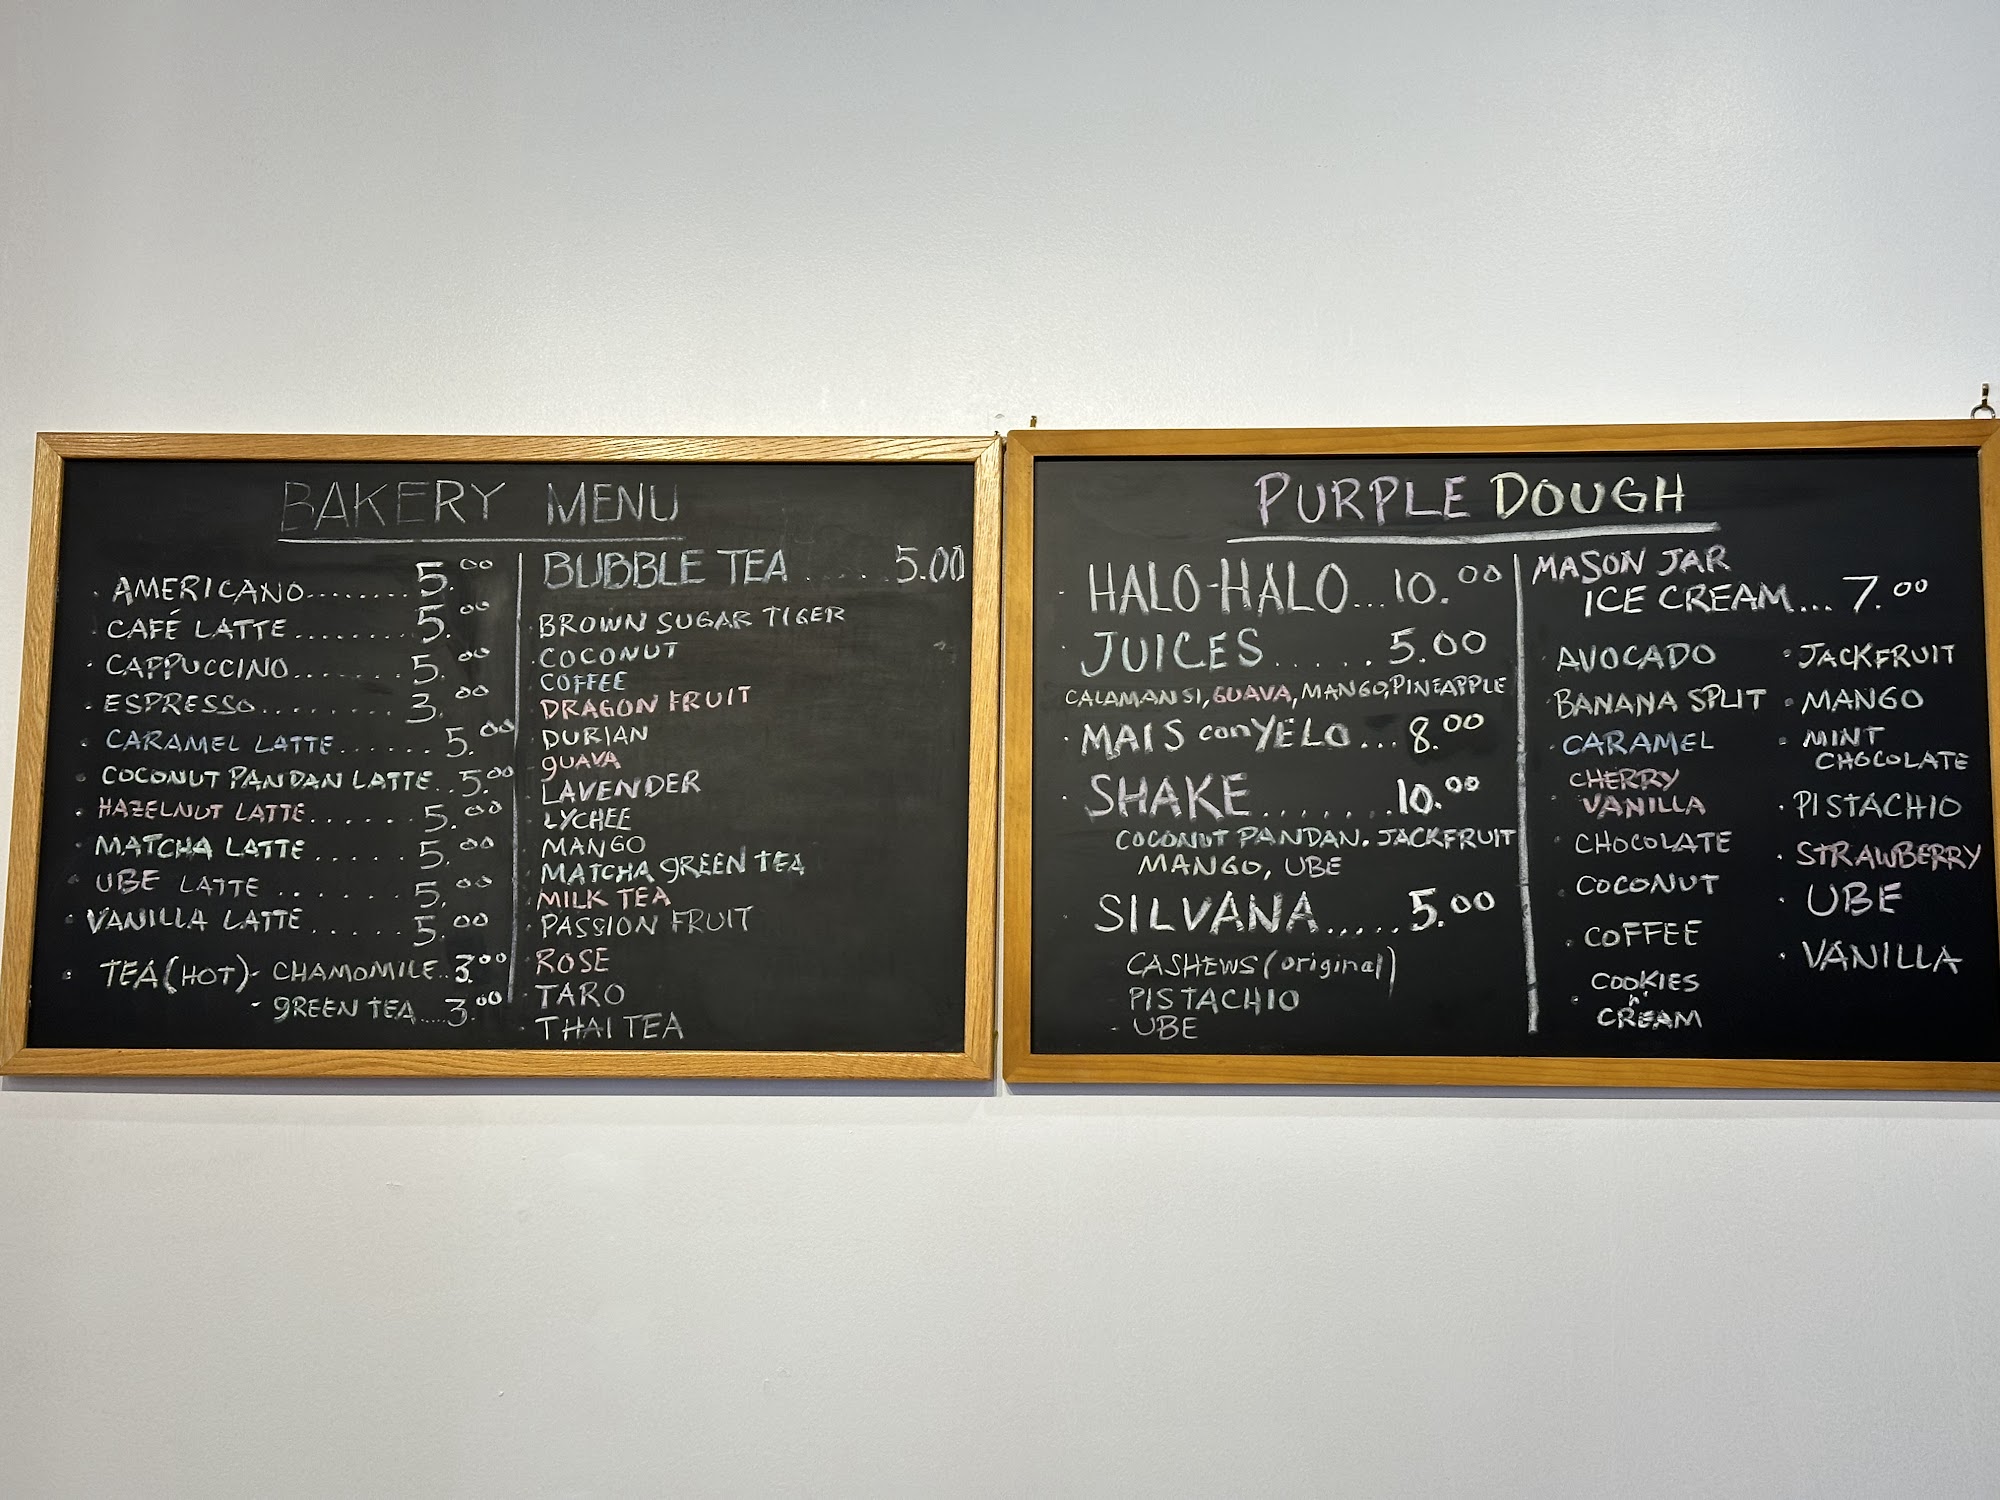 BAKERY MENU
· AMERICANO........ 5.00
· CAFÉ LATTE........ 5.00
· CAPPUCCINO....... 5.00
· ESPRESSO......... 3.00
· CARAMEL LATTE...... 5.00
· COCONUT PANDAN LATTE..5.00
· HAZELNUT LATTE...... 5.00
· MATCHA LATTE ..... 5.00
· UBE LATTE ....... 5.00
· VANILLA LATTE ..... 5.00
· TEA (HOT)- CHAMOMILE..3.00
- GREEN TEA.....3.00
BUBBLE TEA ..... 5.00
· BROWN SUGAR TIGER
· COCONUT
· COFFEE
· DRAGON FRUIT
· DURIAN
· GUAVA
· LAVENDER
· LYCHEE
· MANGO
· MATCHA GREEN TEA
· MILK TEA
· PASSION FRUIT
· ROSE
· TARO
· THAI TEA
PURPLE DOUGH
· HALO-HALO...10.00
· JUICES...... 5.00
CALAMANSI, GUAVA, MANGO, PINEAPPLE
· MAIS con YELO... 8.00
· SHAKE.......10.00
COCONUT PANDAN. JACKFRUIT
MANGO, UBE
· SILVANA..... 5.00
CASHEWS (original)
PISTACHIO
- UBE
MASON JAR
ICE CREAM... 7.00
· AVOCADO
· BANANA SPLIT
· CARAMEL
CHERRY
· VANILLA
· CHOCOLATE
· COCONUT
· COFFEE
COOKIES
· 'n'
CREAM
· JACKFRUIT
· MANGO
· MINT
CHOCOLATE
· PISTACHIO
· STRAWBERRY
· UBE
· VANILLA